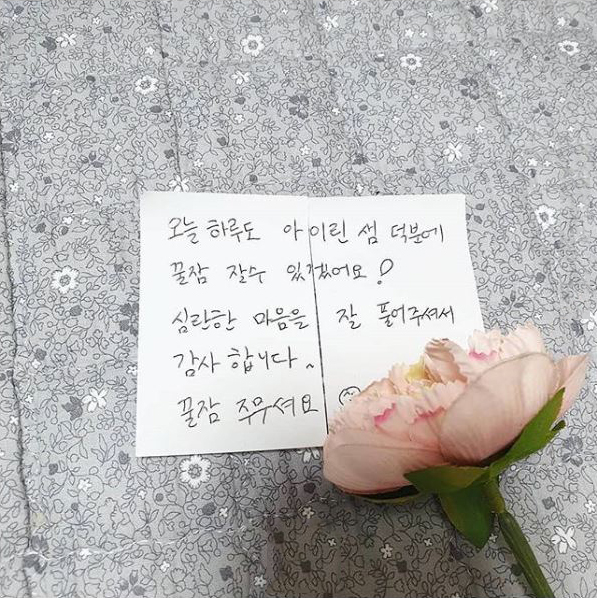 오늘 하루도 아이린 쌤 덕분에
꿀잠 잘수 있겠어요!
심란한 마음을 잘 풀어주셔서
감사합니다~
꿀잠 주무셔요